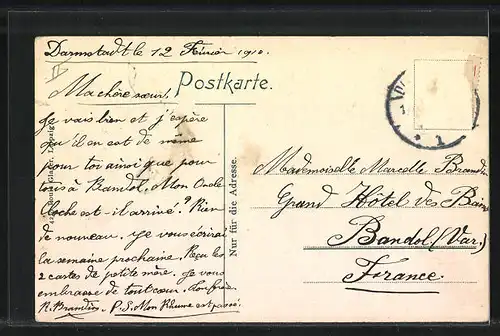 Darmstadt le 12 Février 1910.
II
Postkarte.
Ma chère sœur,
Je vais bien et j'espère
qu'il en est de même
pour toi ainsi que pour
tous à Bandol. Mon Oncle
Cloche est-il arrivé? Rien
de nouveau. Je vous écrirai
la semaine prochaine. Reçu les
2 cartes de petite mère. Je vous
embrasse de tout cœur. Ton frère
R. Brandin P.S. Mon Rhume est passé.
Glaser, Leipzig
Nur für die Adresse.
Mademoiselle Marcelle Brandin
Grand Hôtel des Bains
Bandol (Var.)
France.